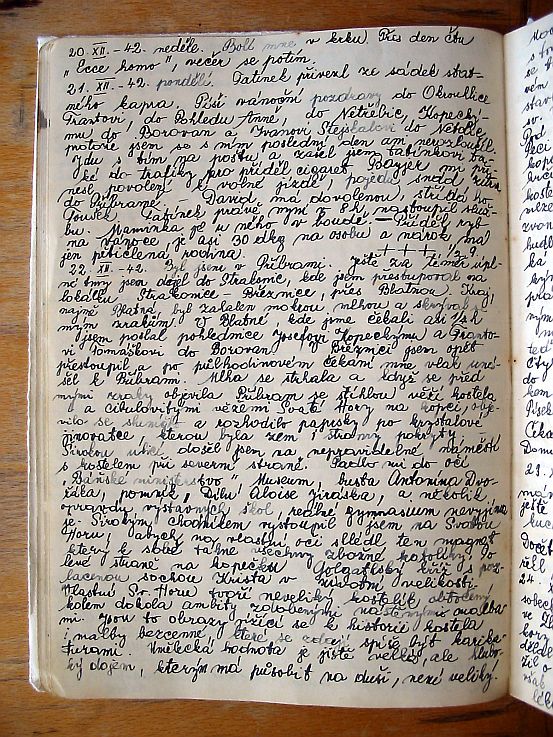 20. XII. - 42. neděle. Bolí mne v krku. Přes den čtu
"Ecce homo" večer se potím.
21. XII. - 42. pondělí. Tatínek přivezl ze sádek
kapra. Píši vánoční pozdravy do Okrouhlice
Frantovi, do Pohledu Anně, do Netřebic, Kopecký-
mu do Borovan a Ivanovi Stejskalovi do Netolic,
protože jsem se s ním poslední den ani nerozloučil.
Jdu s tím na poštu a zašel jsem tatínkovi ta-
ké do trafiky pro příděl cigaret. Bayer mi při-
nesl povolení k volné jízdě, pojedu snad zítra
do Příbramě. - David má dovolenou, střídá ho
Touček. Tatínek právě nyní v 8 h. nastoupil služ-
bu. Maminka je u něho v boudě. - Příděl ryb
na vánoce je asi 30 dkg na osobu a nárok má
jen pětičlená rodina.
22. XII. - 42. Byl jsem v Příbrami. Ještě za téměř úpl-
né tmy jsem dojel do Strakonic, kde jsem přestupoval na
lokálku Strakonice - Březnice, přes Blatnou. Kraj,
najmě Blatné, byl zahalen mokrou mlhou a skrýval se
mým zrakům. V Blatné kde jsme čekali asi 1/2 h
jsem poslal pohlednice Josefovi Kopeckýmu a Franto-
vi Tomáškovi do Borovan. V Březnici jsem opět
přestoupil a po půlhodinovém čekání mne vlak uná-
šel k Příbrami. Mlha se strhala a když se před
mými zraky objevila Příbram se štíhlou věží kostela
a cibulovitými věžemi Svaté Hory na kopci, obje-
vilo se slunce a rozhodilo paprsky po krystalové
jinovatce, kterou byla zem i stromy pokryty.
Širokou ulicí došel jsem na nepravidelné náměstí
s kostelem při severní straně. Padlo mi do očí
"Báňské ministerstvo" Museum, busta Antonína Dvo-
řáka, pomník, Dílu Aloise Jiráska, a několik
opravdu výstavných škol, reálné gymnasium nevyjíma-
je. Širokým chodníkem vystoupil jsem na Svatou
Horu, abych na vlastní oči shlédl ten magnet
který k sobě táhne všechny zbožné katolíky. Po
levé straně na kopečku Golgatský kříž s poz-
lacenou sochou Krista v životní velikosti.
Vlastní Sv. Horu tvoří neveliký kostelík obtočený
kolem dokola ambity zdobenými nástěnnými malba-
mi. Jsou to obrazy řídící se k historii kostela
i malby bezcenné, které se zdají spíše být karika-
turami. Umělecká hodnota je jistě velká, ale hlubo-
ký dojem, kterým má působit na duši, není veliký.